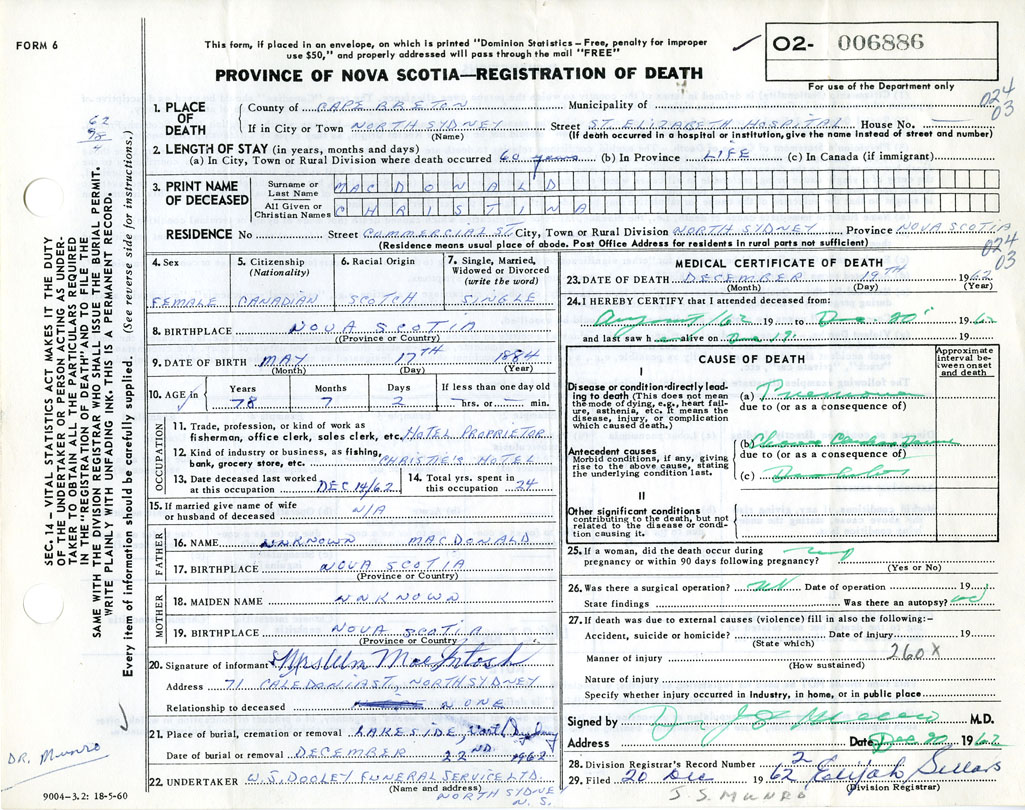 FORM 6
This form, if placed in an envelope, on which is printed "Dominion Statistics – Free, penalty for improper
use $50," and properly addressed will pass through the mail "FREE"
PROVINCE OF NOVA SCOTIA—REGISTRATION OF DEATH
O2- 006886
For use of the Department only
024
03
62
98
4
SEC. 14 – VITAL STATISTICS ACT MAKES IT THE DUTY
OF THE UNDERTAKER OR PERSON ACTING AS UNDER-
TAKER TO OBTAIN ALL THE PARTICULARS REQUIRED
IN THE "REGISTRATION OF DEATH" AND TO FILE THE
SAME WITH THE DIVISION REGISTRAR WHO SHALL ISSUE THE BURIAL PERMIT.
WRITE PLAINLY WITH UNFADING INK. THIS IS A PERMANENT RECORD.
Every item of information should be carefully supplied. (See reverse side for instructions.)
1. PLACE OF DEATH
County of CAPE BRETON Municipality of
If in City or Town NORTH SYDNEY Street ST. ELIZABETH HOSPITAL House No. —
(Name) (If death occurred in a hospital or institution, give the name instead of street and number)
2. LENGTH OF STAY (in years, months and days)
(a) In City, Town or Rural Division where death occurred 60 years (b) In Province LIFE (c) In Canada (if immigrant)
3. PRINT NAME OF DECEASED
Surname or Last Name MACDONALD
All Given or Christian Names CHRISTINA
RESIDENCE No Street COMMERCIAL ST City, Town or Rural Division NORTH SYDNEY Province NOVA SCOTIA
(Residence means usual place of abode. Post Office Address for residents in rural parts not sufficient)
024
03
4. Sex
FEMALE
5. Citizenship (Nationality)
CANADIAN
6. Racial Origin
SCOTCH
7. Single, Married, Widowed or Divorced (write the word)
SINGLE
8. BIRTHPLACE NOVA SCOTIA
(Province or Country)
9. DATE OF BIRTH MAY 17TH 1884
(Month) (Day) (Year)
10. AGE in
Years Months Days If less than one day old
78 7 2 — hrs. or — min.
OCCUPATION
11. Trade, profession, or kind of work as
fisherman, office clerk, sales clerk, etc. HOTEL PROPRIETOR
12. Kind of industry or business, as fishing,
bank, grocery store, etc. CHRISTIE'S HOTEL
13. Date deceased last worked
at this occupation DEC 14/62
14. Total yrs. spent in
this occupation 24
15. If married give name of wife
or husband of deceased N/A
FATHER
16. NAME UNKNOWN MACDONALD
17. BIRTHPLACE NOVA SCOTIA
(Province or Country)
MOTHER
18. MAIDEN NAME UNKNOWN
19. BIRTHPLACE NOVA SCOTIA
(Province or Country)
20. Signature of informant MacIntosh
Address 71 CALEDONIA ST, NORTH SYDNEY
Relationship to deceased NONE
21. Place of burial, cremation or removal LAKESIDE,
Date of burial or removal DECEMBER 22ND 1962
22. UNDERTAKER W.S. DOOLEY FUNERAL SERVICE LTD.
(Name and address) NORTH SYDNEY
N.S.
MEDICAL CERTIFICATE OF DEATH
23. DATE OF DEATH DECEMBER 19TH 1962
(Month) (Day) (Year)
24. I HEREBY CERTIFY that I attended deceased from:
August/62 19 to Dec. 20 1962
and last saw h alive on Dec 19
CAUSE OF DEATH
Approximate interval between onset and death
I
Disease or condition directly lead-
ing to death (This does not mean
the mode of dying, e.g., heart fail-
ure, asthenia, etc. It means the
disease, injury, or complication
which caused death.)
(a) Pneumonia
due to (or as a consequence of)
Antecedent causes
Morbid conditions, if any, giving
rise to the above cause, stating
the underlying condition last.
(b)
due to (or as a consequence of)
(c)
II
Other significant conditions
contributing to the death, but not
related to the disease or condi-
tion causing it.
25. If a woman, did the death occur during
pregnancy or within 90 days following pregnancy?
(Yes or No)
26. Was there a surgical operation? No Date of operation 19
State findings Was there an autopsy? no
27. If death was due to external causes (violence) fill in also the following:–
Accident, suicide or homicide? Date of injury 19
(State which)
Manner of injury 260 X
(How sustained)
Nature of injury
Specify whether injury occurred in industry, in home, or in public place
Signed by Dr. M.D.
Address Date Dec 20 1962
28. Division Registrar's Record Number 2
29. Filed 20 Dec 1962 Elijah Sellars
(Division Registrar)
J.S. MUNRO
DR. Munro
9004-3.2: 18-5-60